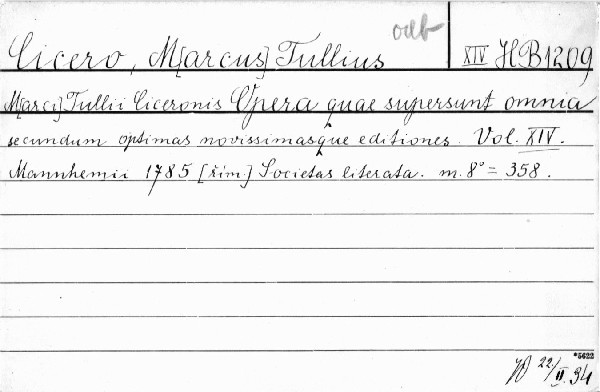 odb
Cicero, M[arcus] Tullius XIV HB1209
M[arci] Tullii Ciceronis Opera quae supersunt omnia
secundum optimas novissimasque editiones. Vol. XIV.
Mannhemii 1785 [řím.] Societas literata. m. 8° = 358.
*5622
22/II.34